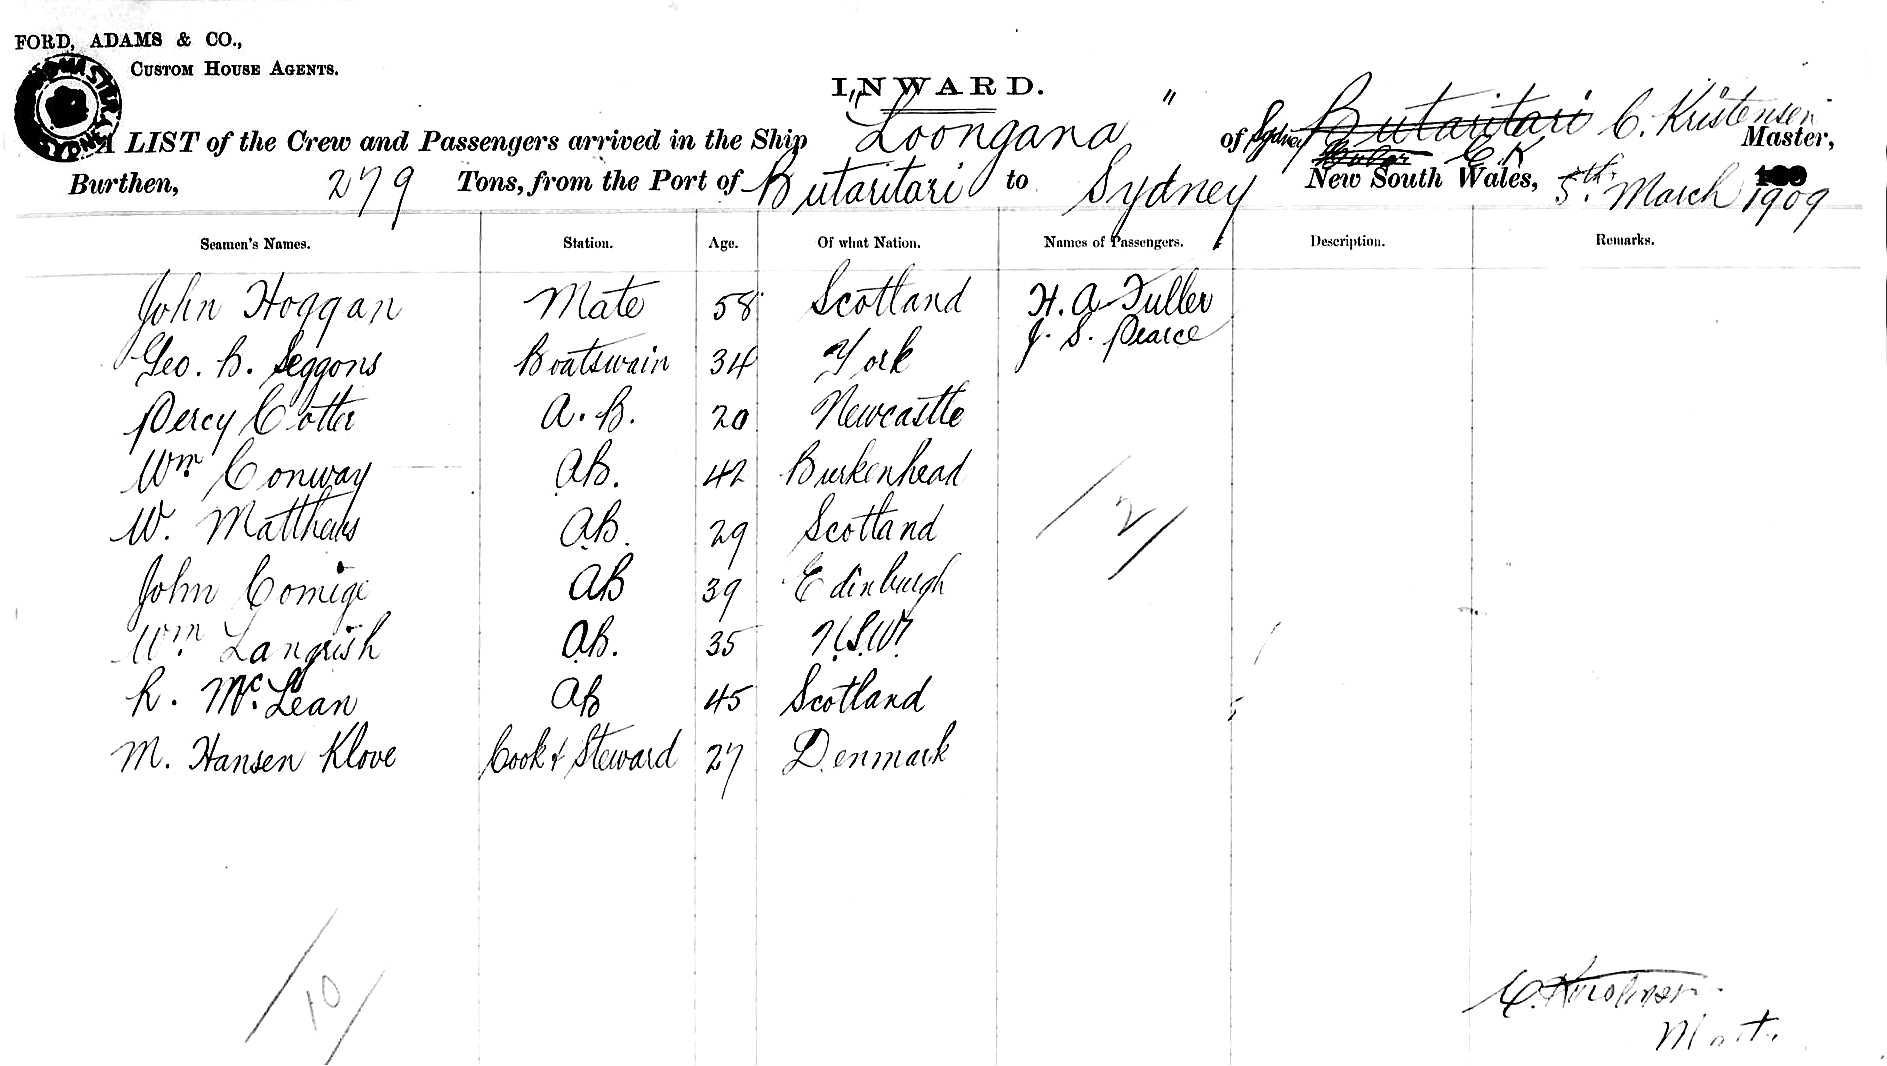 FORD, ADAMS & CO.,
CUSTOM HOUSE AGENTS.
INWARD.
A LIST of the Crew and Passengers arrived in the Ship "Loongana" of Sydney Butaritari C. Kristensen Master,
C.K
Burthen, 279 Tons, from the Port of Butaritari to Sydney New South Wales, 5th. March 1909
Seamen's Names. Station. Age. Of what Nation. Names of Passengers. Description. Remarks.
John Hoggan Mate 58 Scotland H. A. Fuller
J. S. Pearce
Geo. B. Seggons Boatswain 34 York
Percy Cotter A. B. 20 Newcastle
Wm Conway AB. 42 Burkenhead
W. Matthews AB. 29 Scotland
2
John AB 39 Edinburgh
Wm Langrish AB. 35 N.S.W.
R. Mc. Lean AB 45 Scotland
M. Hansen Klove Cook & Steward 27 Denmark
10